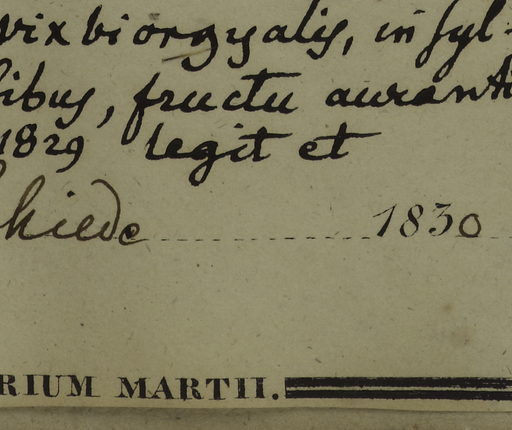 vix biorgyalis, in syl-
ibus, fructu auranti
1829 legit et
hiede 1830
RIUM MARTII.